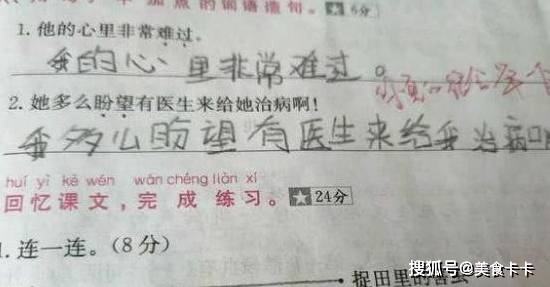 加点的词语造句。★6分
1. 他的心里非常难过。
我的心里非常难过。
2. 她多么盼望有医生来给她治病啊!
我多么盼望有医生来给我治病啊
huí yì kè wén wán chéng liàn xí
回忆课文,完成练习。★24分
1.连一连。(8分)
捉田里的害虫
搜狐号@美食卡卡